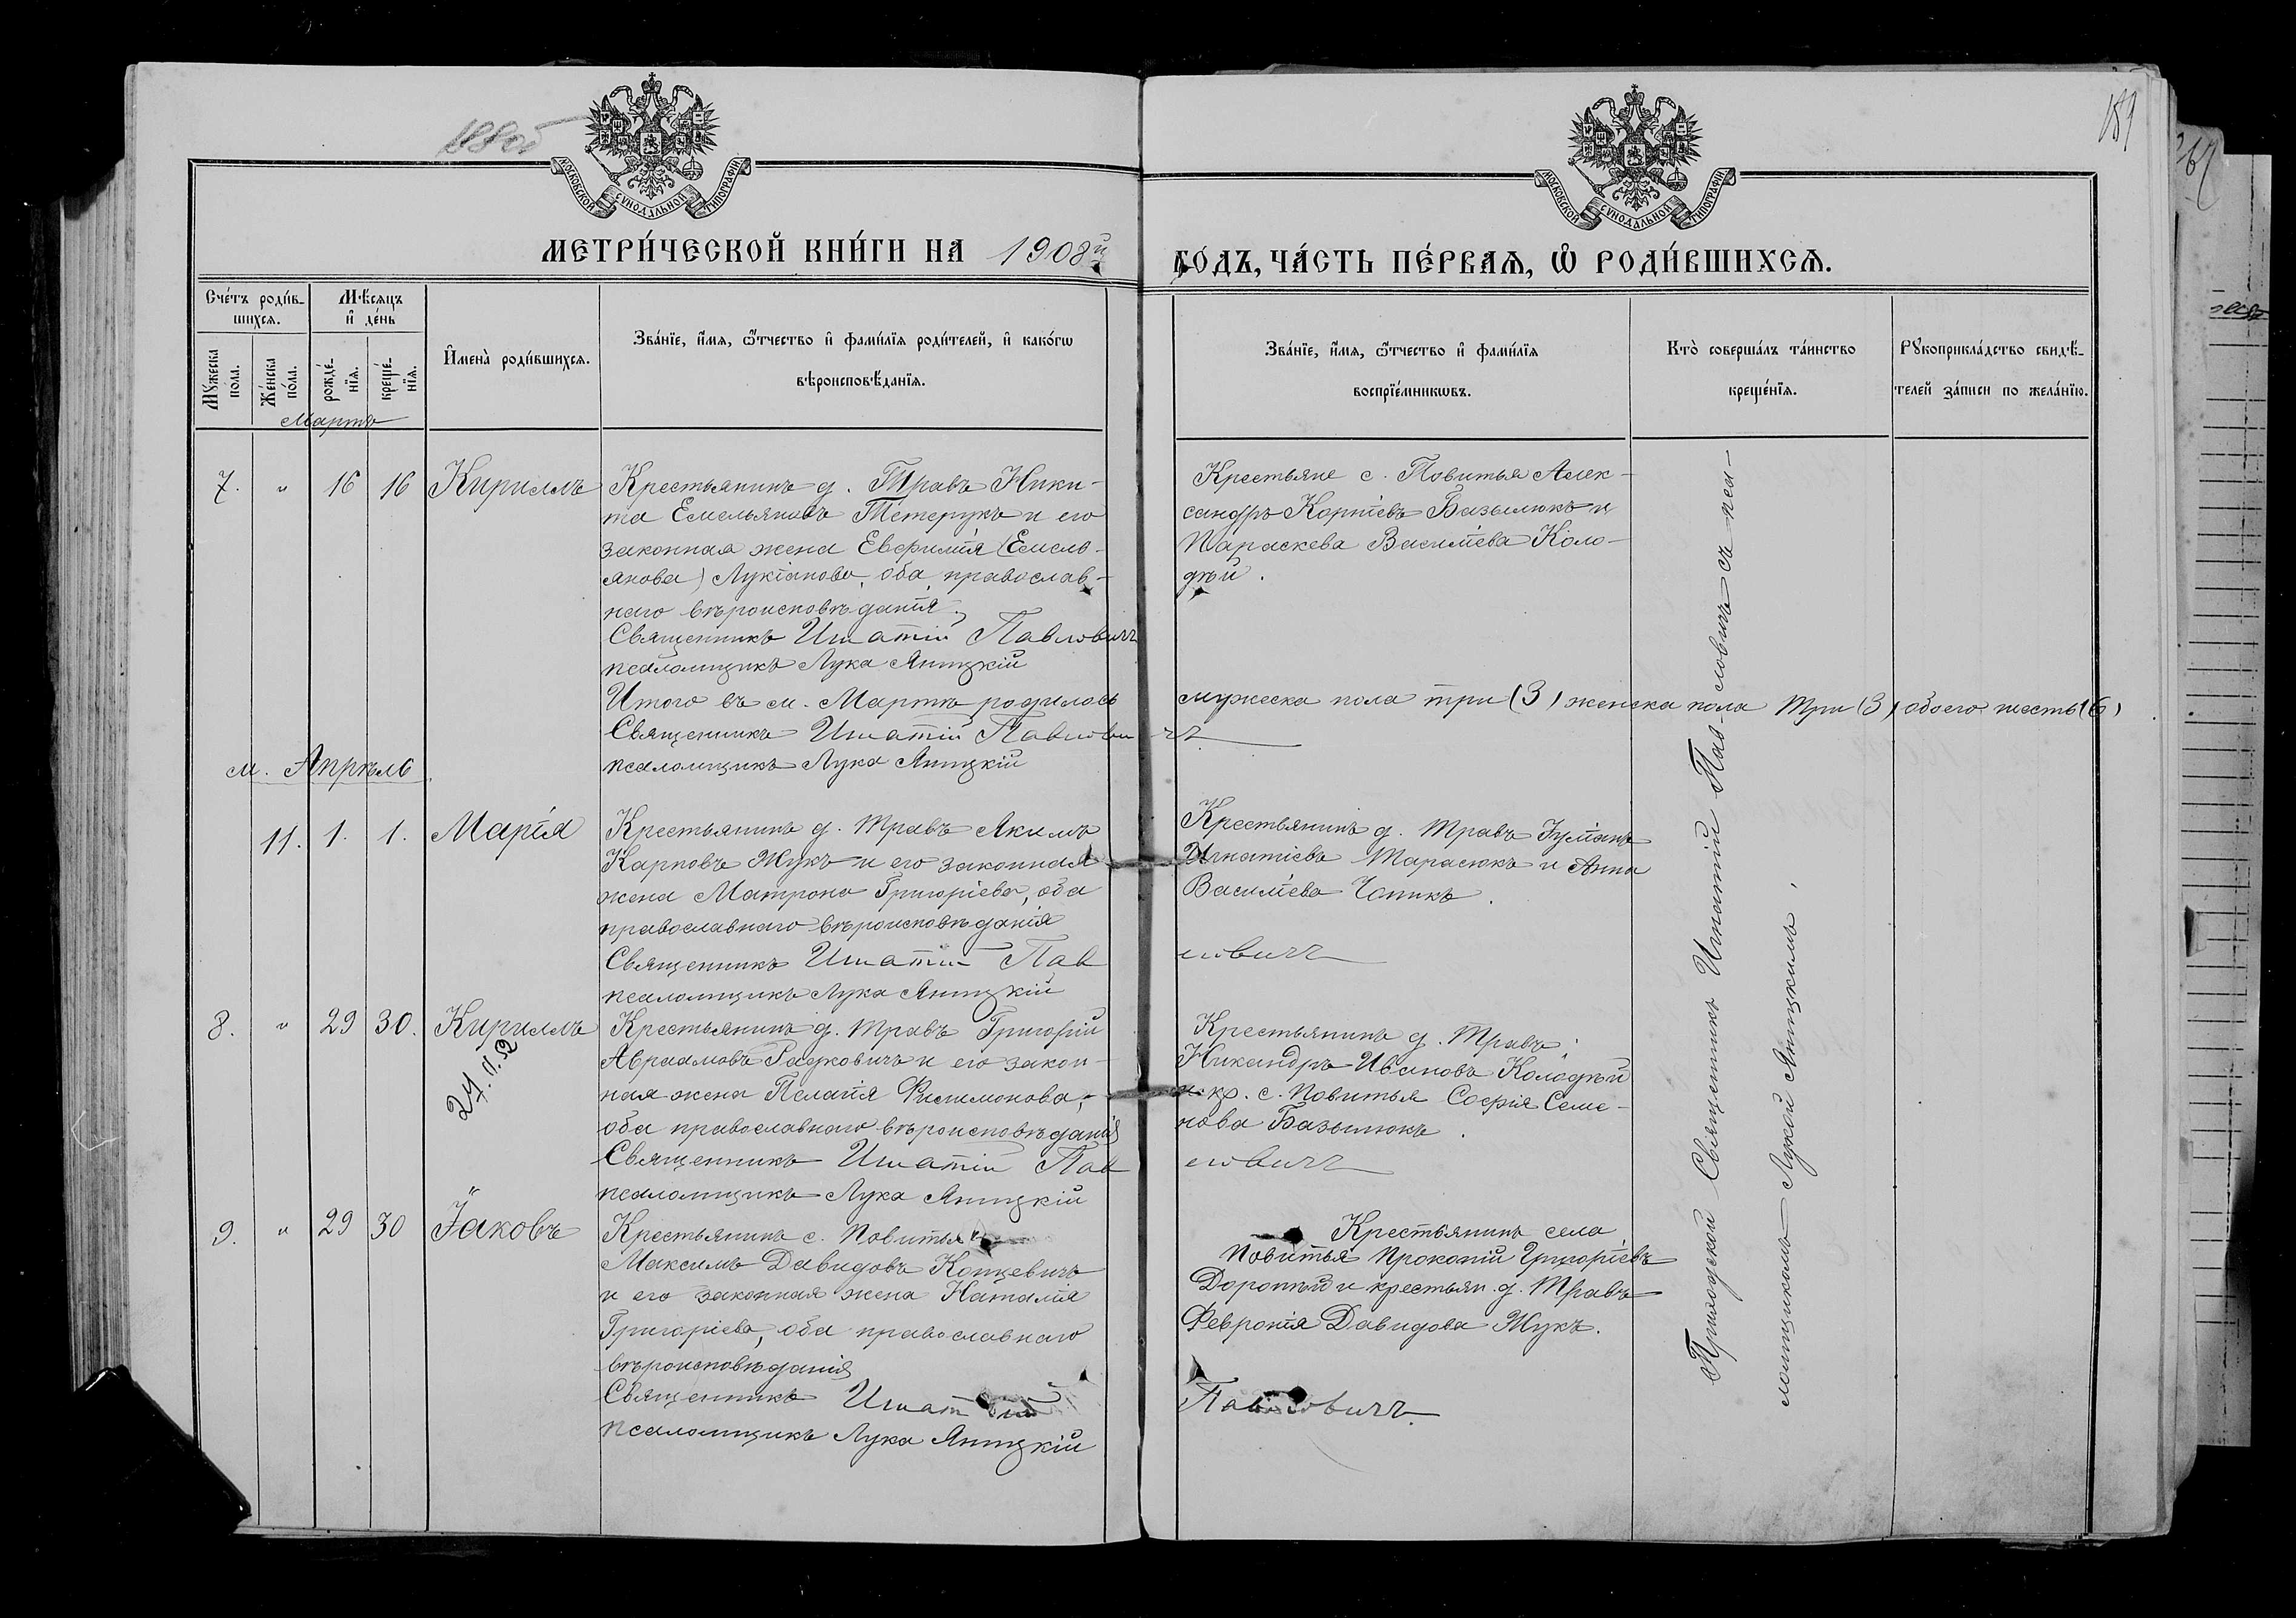 189
МОСКОВСКОЙ СУНОДАЛЬНОЙ ТИПОГРАФІИ
МОСКОВСКОЙ СУНОДАЛЬНОЙ ТИПОГРАФІИ
МЕТРИ́ЧЕСКОЙ КНИ́ГИ НА 1908й
ГО́ДЪ, ЧА́СТЬ ПЕ́РВАѦ, Ѡ҆ РОДИ́ВШИХСѦ.
Сче́тъ роди́в-
шихсѧ.
Мꙋжеска
пола.
Же́нска
по́ла.
Мѣ́сѧцъ
и҆ де́нь
рожде́-
нїѧ.
креще́-
нїѧ.
И҆мена̀ роди́вшихсѧ.
Зва́нїе, и҆́мѧ, ѻ҆́тчество и҆ фами́лїѧ роди́телей, и҆ како́гѡ
вѣроисповѣ́данїѧ.
Зва́нїе, и҆́мѧ, ѻ҆́тчество и҆ фами́лїѧ
воспрїе́мникѡвъ.
Кто̀ соверша́лъ та́инство
креще́нїѧ.
Рꙋкоприкла́дство свидѣ́-
телей за́писи по жела́нїю.
Мартъ
7. " 16 16 Кириллъ
Крестьянинъ д. Травъ Ники-
та Емельяновъ Тетерукъ и его
законная жена Евфимія (Емель-
янова) Лукіанова, оба православ-
наго вѣроисповѣданія.
Священникъ Игнатій Павловичъ
псаломщикъ Лука Яницкій
Крестьяне с. Повитья Алек-
сандръ Корніевъ Базылюкъ и
Параскева Василіева Коло-
дѣй.
Итого въ м. Мартѣ родилось мужеска пола три (3) женска пола три (3) обоего шесть (6)
Священникъ Игнатій Павловичъ
псаломщикъ Лука Яницкій
м. Апрѣль
11. 1. 1. Марія
Крестьянинъ д. Травъ Акимъ
Карповъ Жукъ и его законная
жена Матрона Григоріева, оба
православнаго вѣроисповѣданія
Священникъ Игнатій Павловичъ
псаломщикъ Лука Яницкій
Крестьянинъ д. Травъ Іуліанъ
Игнатіевъ Тарасюкъ и Анна
Василіева
8. " 29 30. Кириллъ
Крестьянинъ д. Травъ Григорій
Авраамовъ Радковичъ и его закон-
ная жена Пелагія Филимонова,
оба православнаго вѣроисповѣданія
Священникъ Игнатій Павловичъ
псаломщикъ Лука Яницкій
Крестьянинъ д. Травъ
Никандръ Ивановъ Колодѣй
и кр. с. Повитья Софія Семе-
нова Базылюкъ.
9. " 29 30 Іаковъ
Крестьянинъ с. Повитья
Максимъ Давидовъ Концевичъ
и его законная жена Наталія
Григоріева, оба православнаго
вѣроисповѣданія
Священникъ Игнатій Павловичъ.
псаломщикъ Лука Яницкій
Крестьянинъ села
Повитья Прокопій Григоріевъ
Доропѣй и крестьян. д. Травъ
Февронія Давидова Жукъ.
Приходской Священникъ Игнатій Павловичъ съ пса-
ломщикомъ Лукой Яницкимъ.